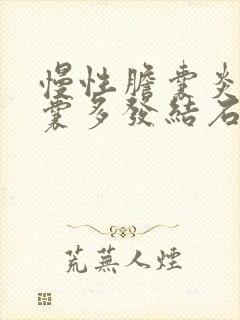 慢性膽囊炎
囊多發結石
荒蕪人煙